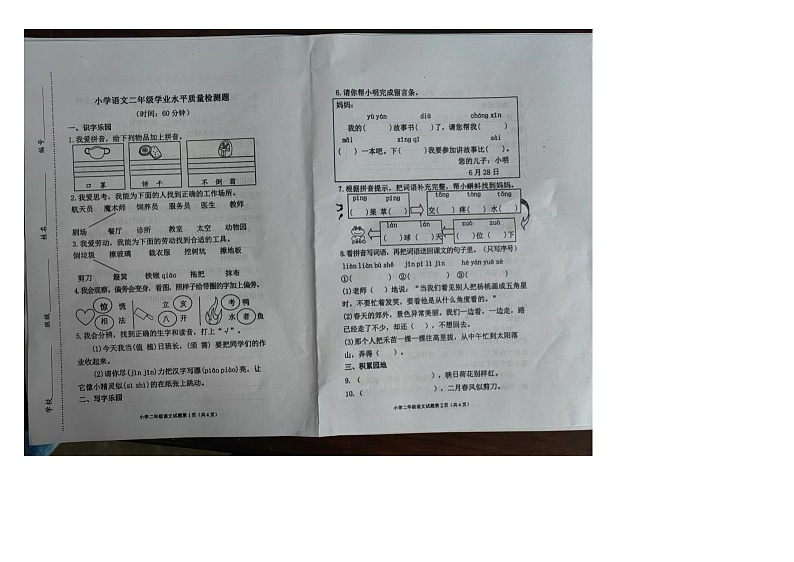 学校 班级 姓名 编号
小学语文二年级学业水平质量检测题
(时间:60分钟)
一、识字乐园
1.我爱拼音,给下列物品加上拼音。
口 罩 饼 干 不 倒 翁
2.我爱思考,我能为下面的人找到正确的工作场所。
航天员 魔术师 饲养员 服务员 医生 教师
剧场 餐厅 诊所 教室 太空 动物园
3.我爱劳动,我能为下面的劳动找到合适的工具。
倒垃圾 擦玻璃 裁衣服 挖树坑 擦地板
剪刀 簸箕 铁锹qiāo 拖把 抹布
4.我会观察,偏旁会变身,看图,照样子给带圈的字加上偏旁。
惊 慌 立 亥 考 鸭
相 法 八 开 水 者 鱼
5.我会分辨,找到正确的生字和读音,打上“√”。
(1)今天我当(值 植)日班长,(须 需)要把同学们的作
业收起来。
(2)请你尽(jǐn jìn)力把汉字写漂(piāo piào)亮,让
它像小精灵似(sì shì)的在纸张上跳动。
二、写字乐园
小学二年级语文试题第1页(共4页)
6.请你帮小明完成留言条。
妈妈:
yù yán diū chóng xīn
我的( )故事书( )了,请您帮我( )
mǎi xīng qī sài
( )一本吧。下( )我要参加讲故事比( )。
您的儿子:小明
6月28日
7.根据拼音提示,把词语补充完整,帮小蝌蚪找到妈妈。
píng píng tōng téng tòng
( )果 草( ) 交( ) 疼( ) 水( )
lán lán zuò zuǒ
( )球 ( )天 ( )位 ( )下
8.看拼音写词语,再把词语送回课文的句子里。(只写序号)
liàn liàn bù shě jīn pí lì jìn hé yán yuè sè
①( ) ②( ) ③( )
(1)老师( )地说:“当我们看见别人把杨桃画成五角星
时,不要忙着发笑,要看他是从什么角度看的。”
(2)春天的郊外,景色异常美丽。我们一边看,一边走,路
已经走了不少,却还( ),不想回去。
(3)那个人把禾苗一棵一棵往高里拔,从中午忙到太阳落
山,弄得( )。
三、积累园地
9.( ),映日荷花别样红。
10.( ),二月春风似剪刀。
小学二年级语文试题第2页(共4页)